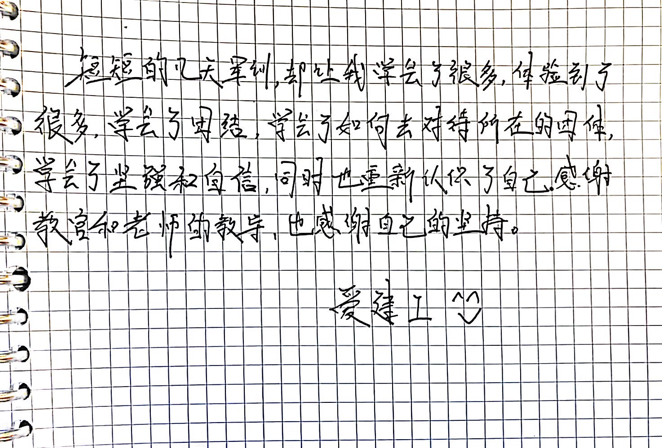 短短的几天军训,却让我学会了很多,体验到了
很多,学会了团结,学会了如何去对待所在的团体,
学会了坚强和自信,同时也重新认识了自己.感谢
教官和老师的教导,也感谢自己的坚持。
爱建工 ^^